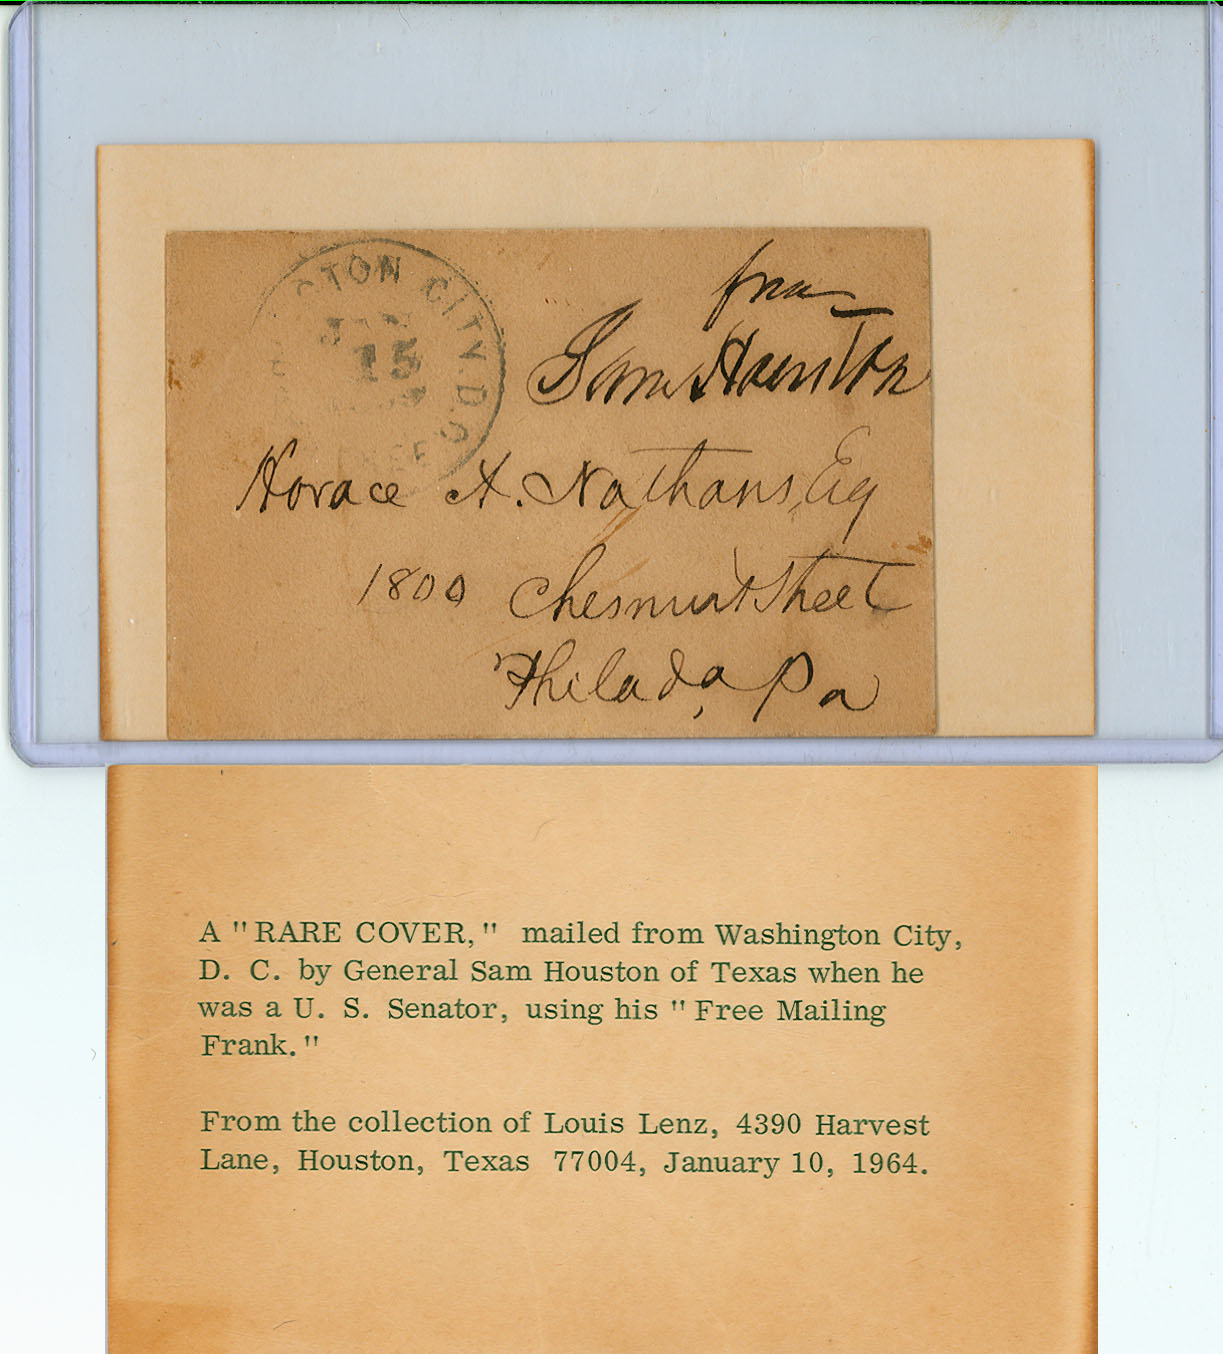 GTON CITY. D.C.
15
free
Sam Houston
Horace A. Nathans, Esq
1800 Chesnut Street
Philada, Pa
A "RARE COVER," mailed from Washington City,
D. C. by General Sam Houston of Texas when he
was a U. S. Senator, using his "Free Mailing
Frank."
From the collection of Louis Lenz, 4390 Harvest
Lane, Houston, Texas 77004, January 10, 1964.